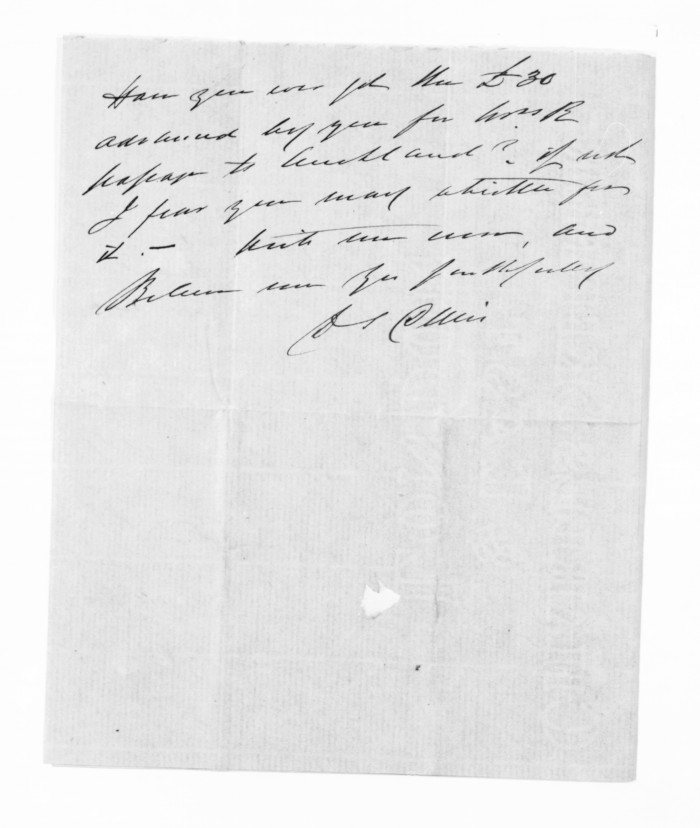 Have you ever got the £30
advanced by you for Mrs R
passage to Auckland? if not
I fear you may whistle for
it. — Write me now, and
Believe me Yrs faithfully
Ellis